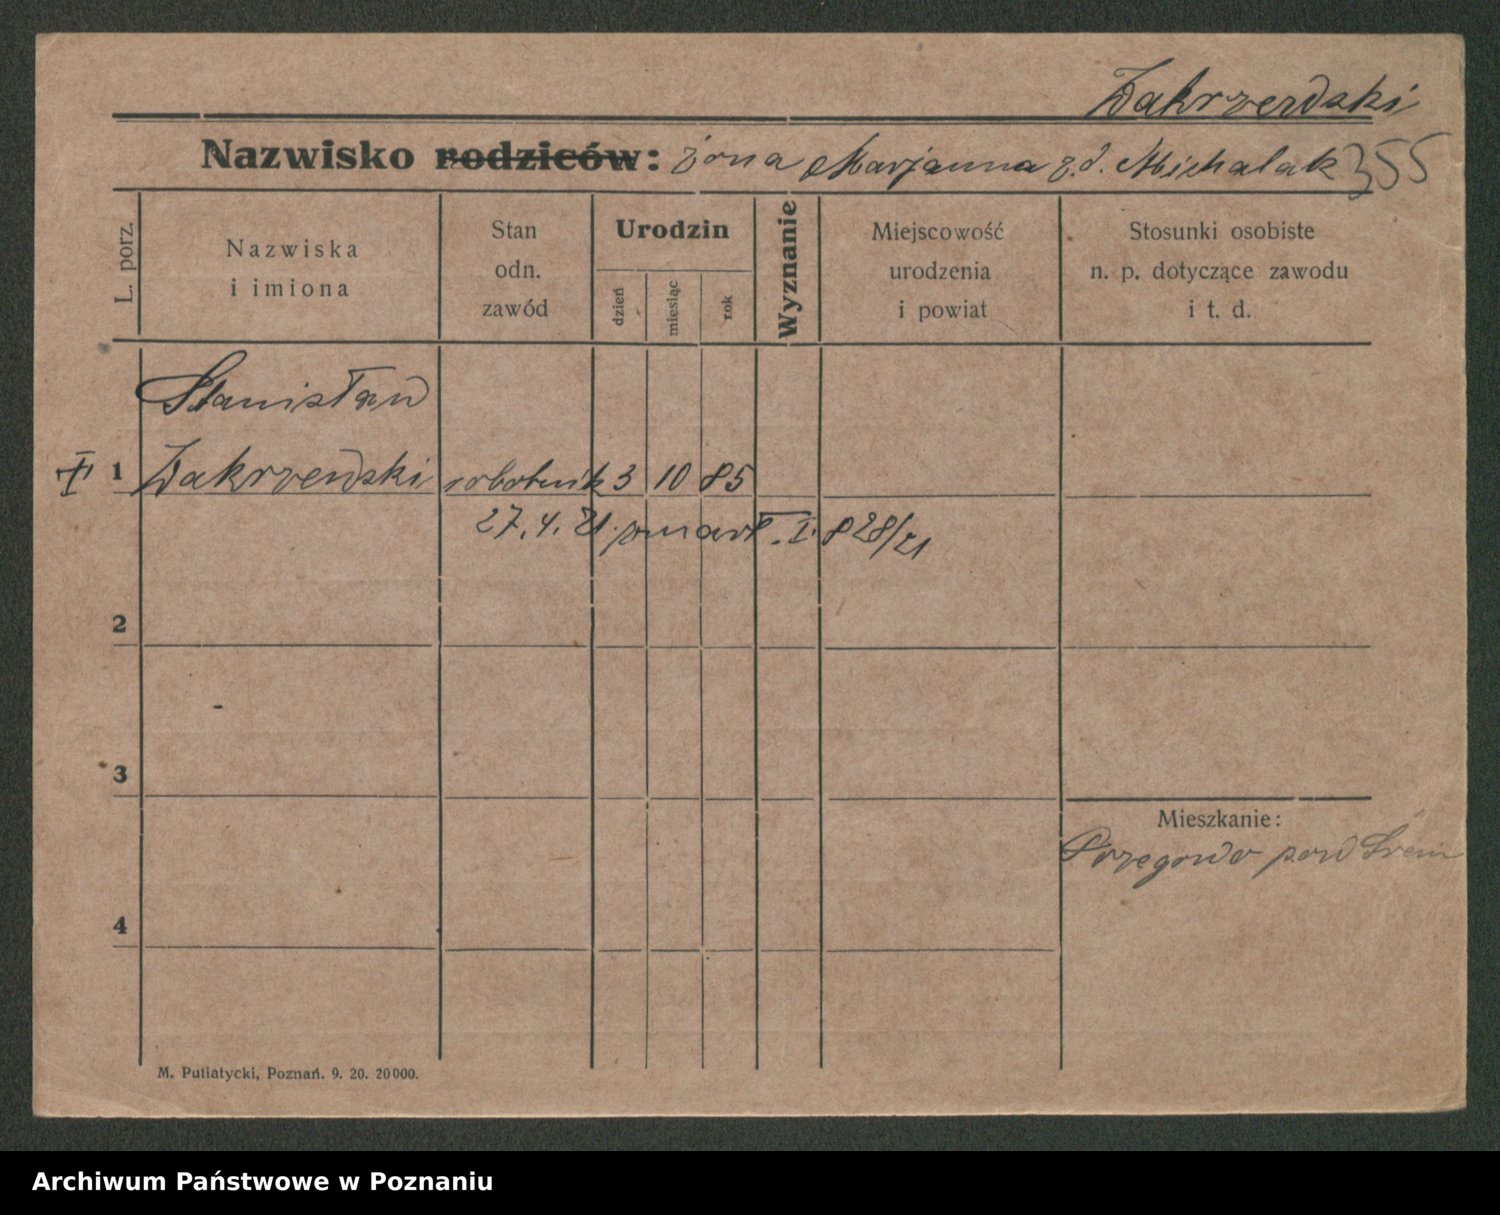 Zakrzewski
Nazwisko rodziców: żona Marjanna z d. Michalak 355
L. porz.
Nazwiska
i imiona
Stan
odn.
zawód
Urodzin
dzień
miesiąc
rok
Wyznanie
Miejscowość
urodzenia
i powiat
Stosunki osobiste
n. p. dotyczące zawodu
i t. d.
Stanisław
1 Zakrzewski robotnik 3 10 85
27. 4. 21. zmarł. I. 828/21
2
3
Mieszkanie:
pow Śrem
4
M. Putiatycki, Poznań. 9. 20. 20000.
Archiwum Państwowe w Poznaniu